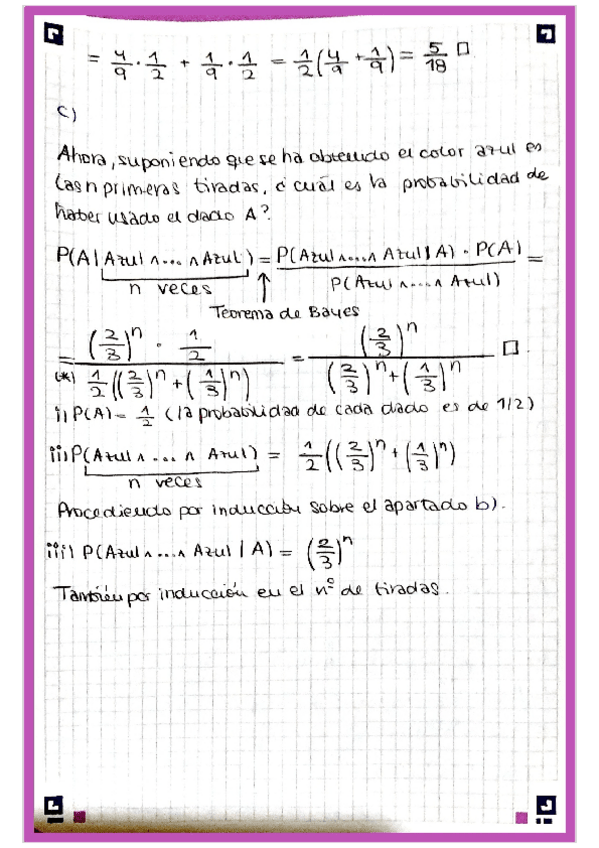 = 4/9 · 1/2 + 1/9 · 1/2 = 1/2 (4/9 + 1/9) = 5/18 □
c)
Ahora, suponiendo que se ha obtenido el color azul en
las n primeras tiradas, ¿cuál es la probabilidad de
haber usado el dado A?
P(A | Azul ∧ ... ∧ Azul) = P(Azul ∧ ... ∧ Azul | A) · P(A) / P(Azul ∧ ... ∧ Azul) =
n veces ↑
Teorema de Bayes
= (*) (2/3)^n · 1/2 / 1/2 ((2/3)^n + (1/3)^n) = (2/3)^n / (2/3)^n + (1/3)^n □.
i) P(A) = 1/2 (la probabilidad de cada dado es de 1/2)
ii) P(Azul ∧ ... ∧ Azul) = 1/2 ((2/3)^n + (1/3)^n)
n veces
Procediendo por inducción sobre el apartado b).
iii) P(Azul ∧ ... ∧ Azul | A) = (2/3)^n
También por inducción en el nº de tiradas.